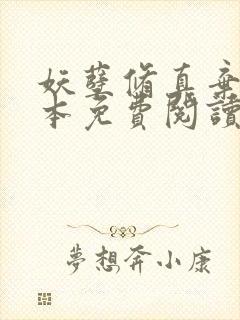 妖孽脩真棄
本免費閱讀
夢想奔小康